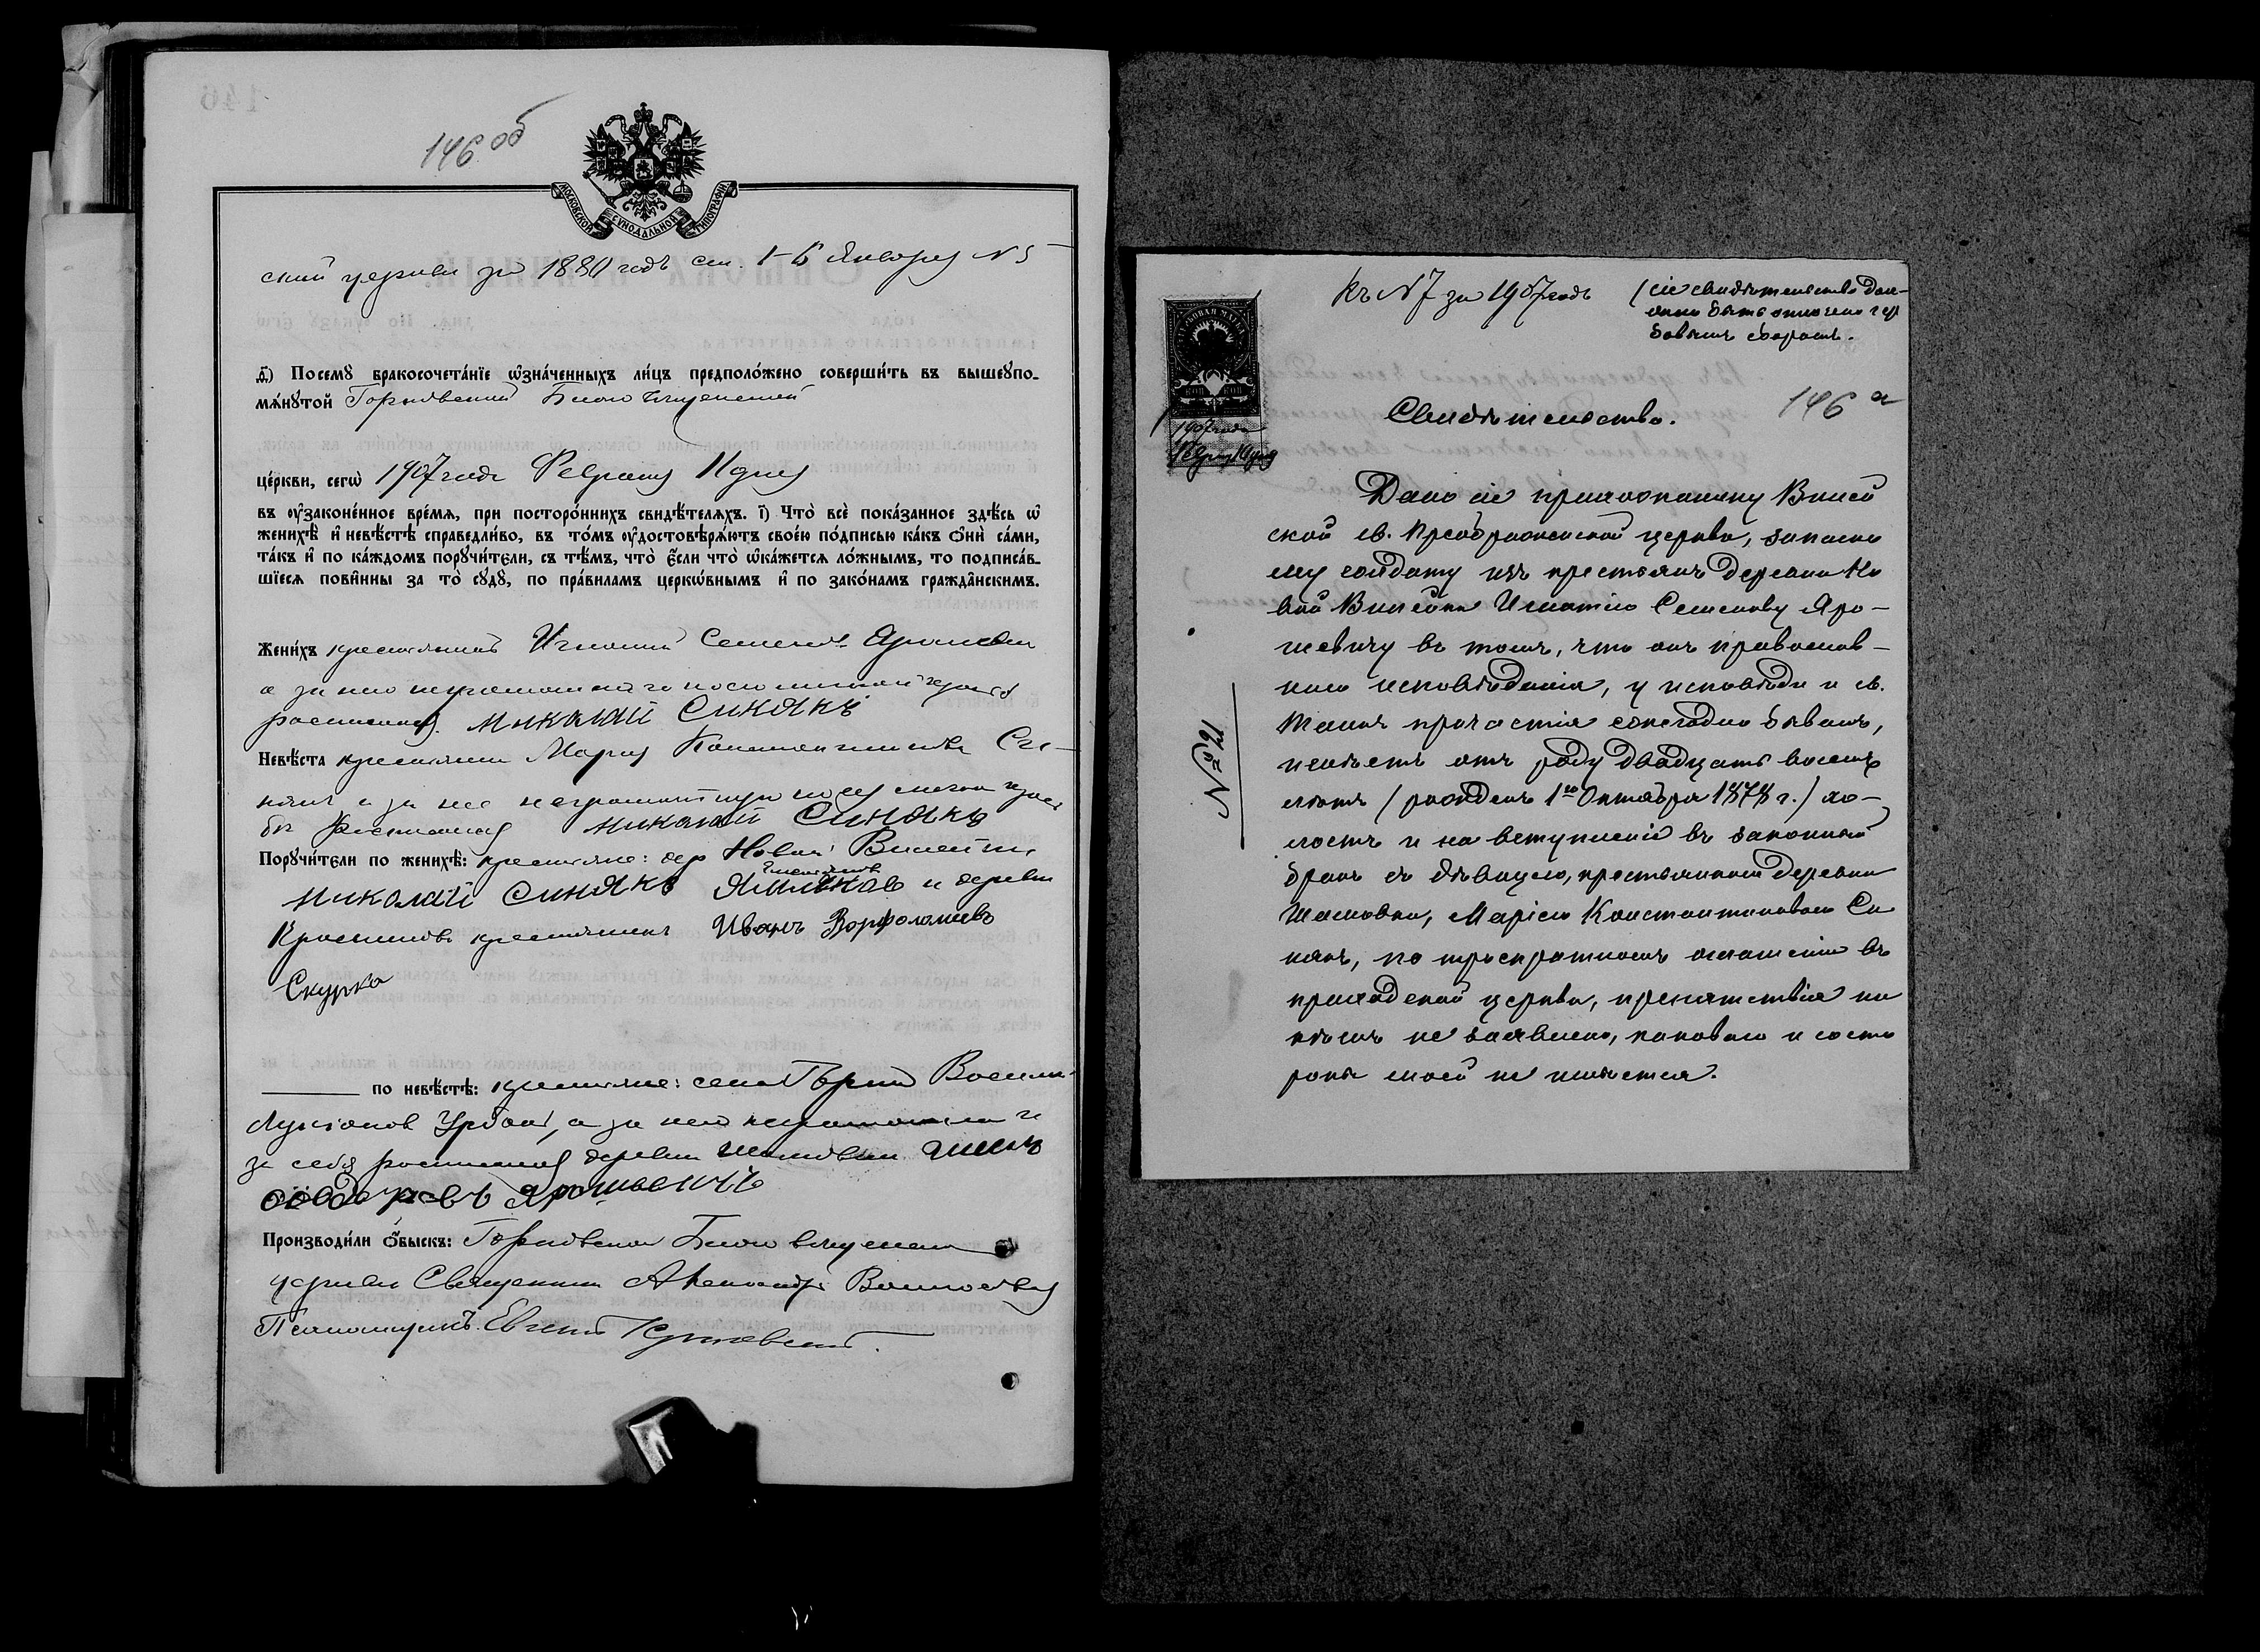 146 об
МОСКОВСКОЙ СѴНОДАЛЬНОЙ ТИПОГРАФІИ
ской церкви за 1880 годъ ст. 1-6 Января N 5
ѳ҃) Посемꙋ бракосочета́нїе ѡ҆зна́ченныхъ ли́цъ предполо́жено соверши́ть въ вышеꙋпо-
мѧ́нꙋтой Горковской Благовѣщенской
це́ркви, сегѡ̀ 1907 года Февраля 11 дня
въ ᲂу҆законе́нное вре́мѧ, при посторо́ннихъ свидѣ́телѧхъ. і҃) Что̀ всѐ пока́занное здѣ́сь ѡ҆
женихѣ̀ и҆ невѣ́стѣ справедли́во, въ то́мъ ᲂу҆достовѣрѧ́ютъ свое́ю по́дписью ка́къ ѻ҆нѝ са́ми,
та́къ и҆ по ка́ждомъ порꙋчи́тели, съ тѣ́мъ, что̀ є҆́сли что̀ ѡ҆ка́жетсѧ ло́жнымъ, то подписа́в-
шїесѧ пови́нны за то̀ сꙋдꙋ̀, по пра́виламъ церко́внымъ и҆ по зако́намъ гражда́нскимъ.
Жени́хъ крестьянинъ Игнатій Семеновъ Ярошевич
а за него неграмотнаго по его личной просьбѣ
росписался Миколай Синякъ
Невѣ́ста крестьянка Марія Константинова Си-
някъ а за нее неграмотную по ея личной прось
бѣ росписался Миколай Синякъ
Порꙋчи́тели по женихѣ̀: крестьяне: дер Новой Вилейки
Миколай Синякъ и деревни
крестьянинъ Иванъ Ворфоломѣевъ
Скурко
по невѣ́стѣ: крестьяне: села Горки Василій
Лукіанов Урбан, а за него неграмотнаго и
за себя росписался деревни
Ѳеодоровъ Ярошевичъ
Производи́ли ѻ҆́быскъ: Горковской Благовѣщенской
церкви Священникъ Александръ
Псаломщикъ Евгеній
Къ N 7 за 1907 годъ
(сіе свидѣтельство дол-
жно быть оплачено гер
бовымъ сборомъ.
146 а
1907 года
Свидѣтельство.
Дано сіе прихожанину
ской св. Преображенской церкви, запасно
му солдату изъ крестьянъ деревни Но
вой Игнатію Семенову Яро-
шевичу въ томъ, что онъ православ-
наго исповѣданія, у исповѣди и св.
Таинъ причастія ежегодно бывалъ,
имѣетъ отъ роду двадцать восемь
лѣтъ (рожденъ 1го Октября 1878 г.) хо-
лостъ и на вступленіе въ законный
бракъ съ дѣвицею, крестьянкой деревни
Маріею Константиновою Си
някъ, по троекратномъ оглашеніи въ
приходской церкви, препятствія ни
кѣмъ не заявлено, каковаго и со сто
роны моей не имѣется.
№ 21